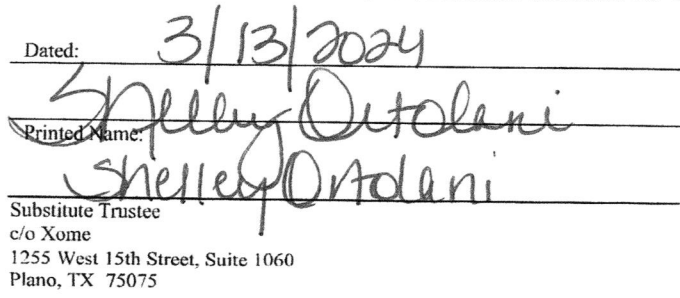 Dated: 3/13/2024
Shelley Ortolani
Printed Name:
Shelley Ortolani
Substitute Trustee
c/o Xome
1255 West 15th Street, Suite 1060
Plano, TX 75075